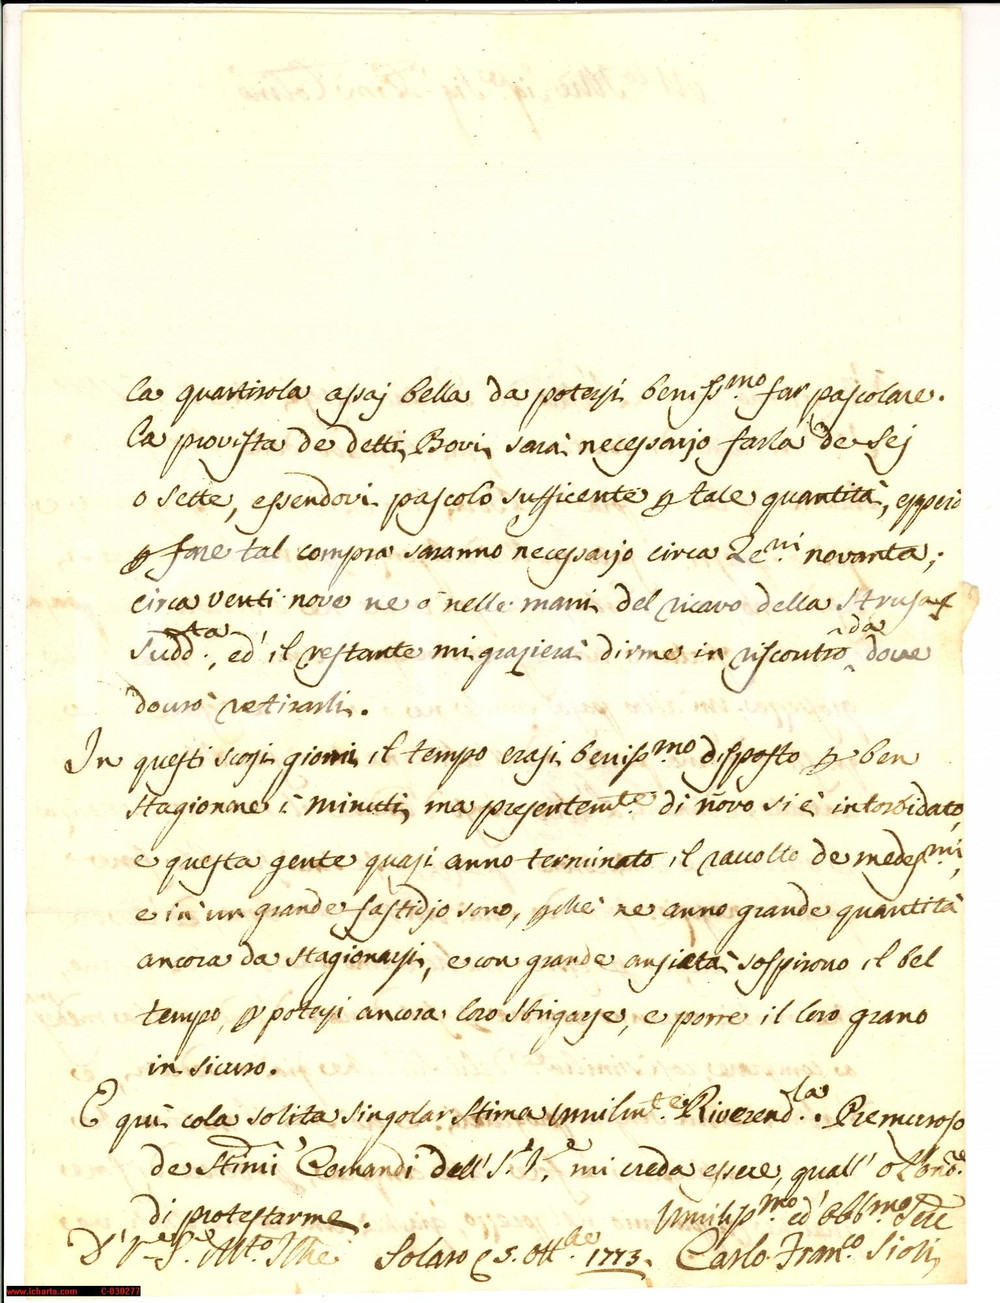 la quartirola assaj bella da potersi beniss.mo far pascolare.
La provista de detti Bovi sarà necessarjo farla de sej
o sette, essendovi pascolo sufficente p tale quantità, epperò
p fare tal compra saranno necessarjo circa Ze.ni novanta;
circa venti nove ne ò nelle mani del ricavo della Strusa
sudd.ta, ed' il restante mi grazierà dirme in riscontro da dove
dovrò retirarli.
In questi scorsi giorni il tempo erasi beniss.mo disposto p ben
stagionare i minuti, ma presentem.te di novo si è intorbidato,
e questa gente quasi anno terminato il raccolto de medes.mi,
e in un grande fastidjo sono, pchè ne anno grande quantità
ancora da stagionarsi, e con grande ansietà sospirono il bel
tempo, p potersi ancora loro sbrigarse, e porre il loro grano
in sicuro.
E quì cola solita singolar stima umilm.te Riverend.la. Premuroso
de stimi Comandi dell' S.V. mi creda essere, quall' ò l'ono.e
di protestarme.
Umiliss.mo ed' Obb.mo Ser.e
D' V.S. M.to Ill.re Solaro 5. Ott.bre 1773. Carlo Fran.co Sioli
www.icharta.com C-030277